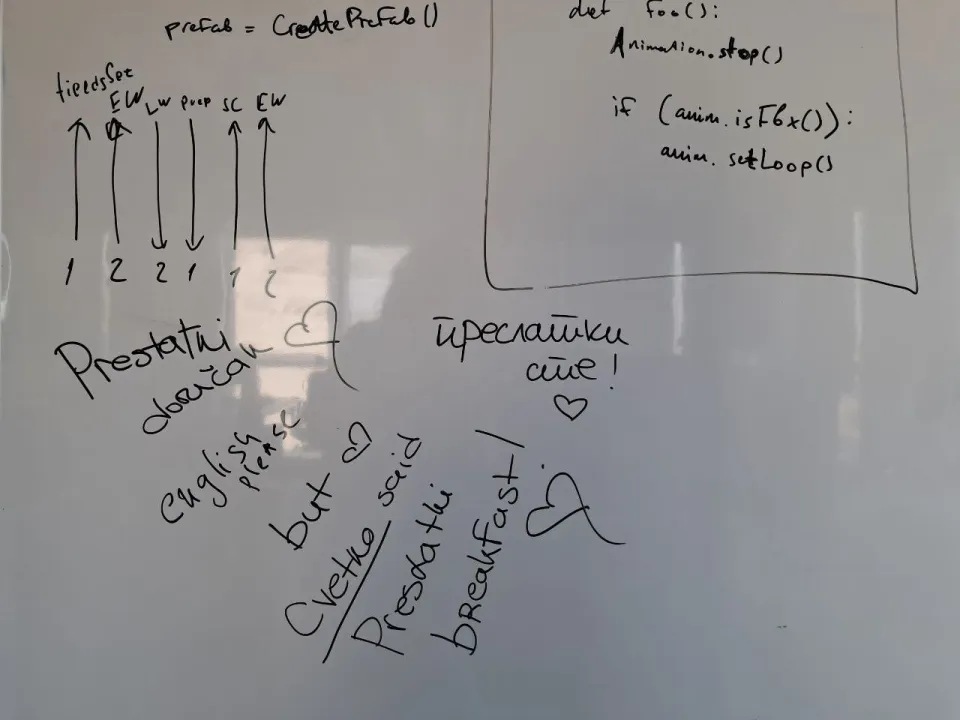 prefab = CreatePrefab()
def foo():
Animation.stop()
if (anim.isFbx()):
anim.setLoop()
EW LW prep SC EW
1 2 2 1 1 2
Prestatni
doručak
english
please
but
Cvetko said
Presdatni
breakfast!
преслатки
сте!